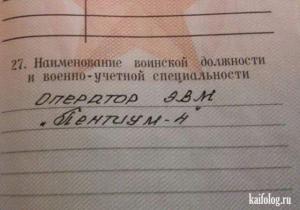 27. Наименование воинской должности
и военно-учетной специальности
Оператор ЭВМ
"Пентиум-4"
kaifolog.ru